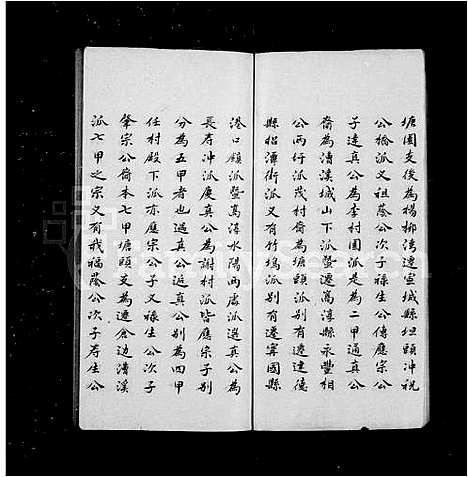 塘園支後為楊柳湾遷宣城縣垣頭冲祝
公橋派又祖蔭公次子祿生公傳應宗公
子達真公為李村園派是為二甲通真公
裔為漕溪城山下派暨遷高淳縣永豐相
公兩圩派茂村裔為塘頭派别有遷建德
縣招潭街派又有竹塢派别有遷寧國縣
港口鎮派暨高淳水陽两處派選真公為
長壽冲派慶真公為謝村派皆應宗子别
分為五甲者也遇真公遊真公别為四甲
任村殿下派亦應宗公子又祿生公次子
肇宗公裔本七甲塘頭支為遷倉边漕溪
派七甲之宗又有我福蔭公次子寿生公
FamilySearch